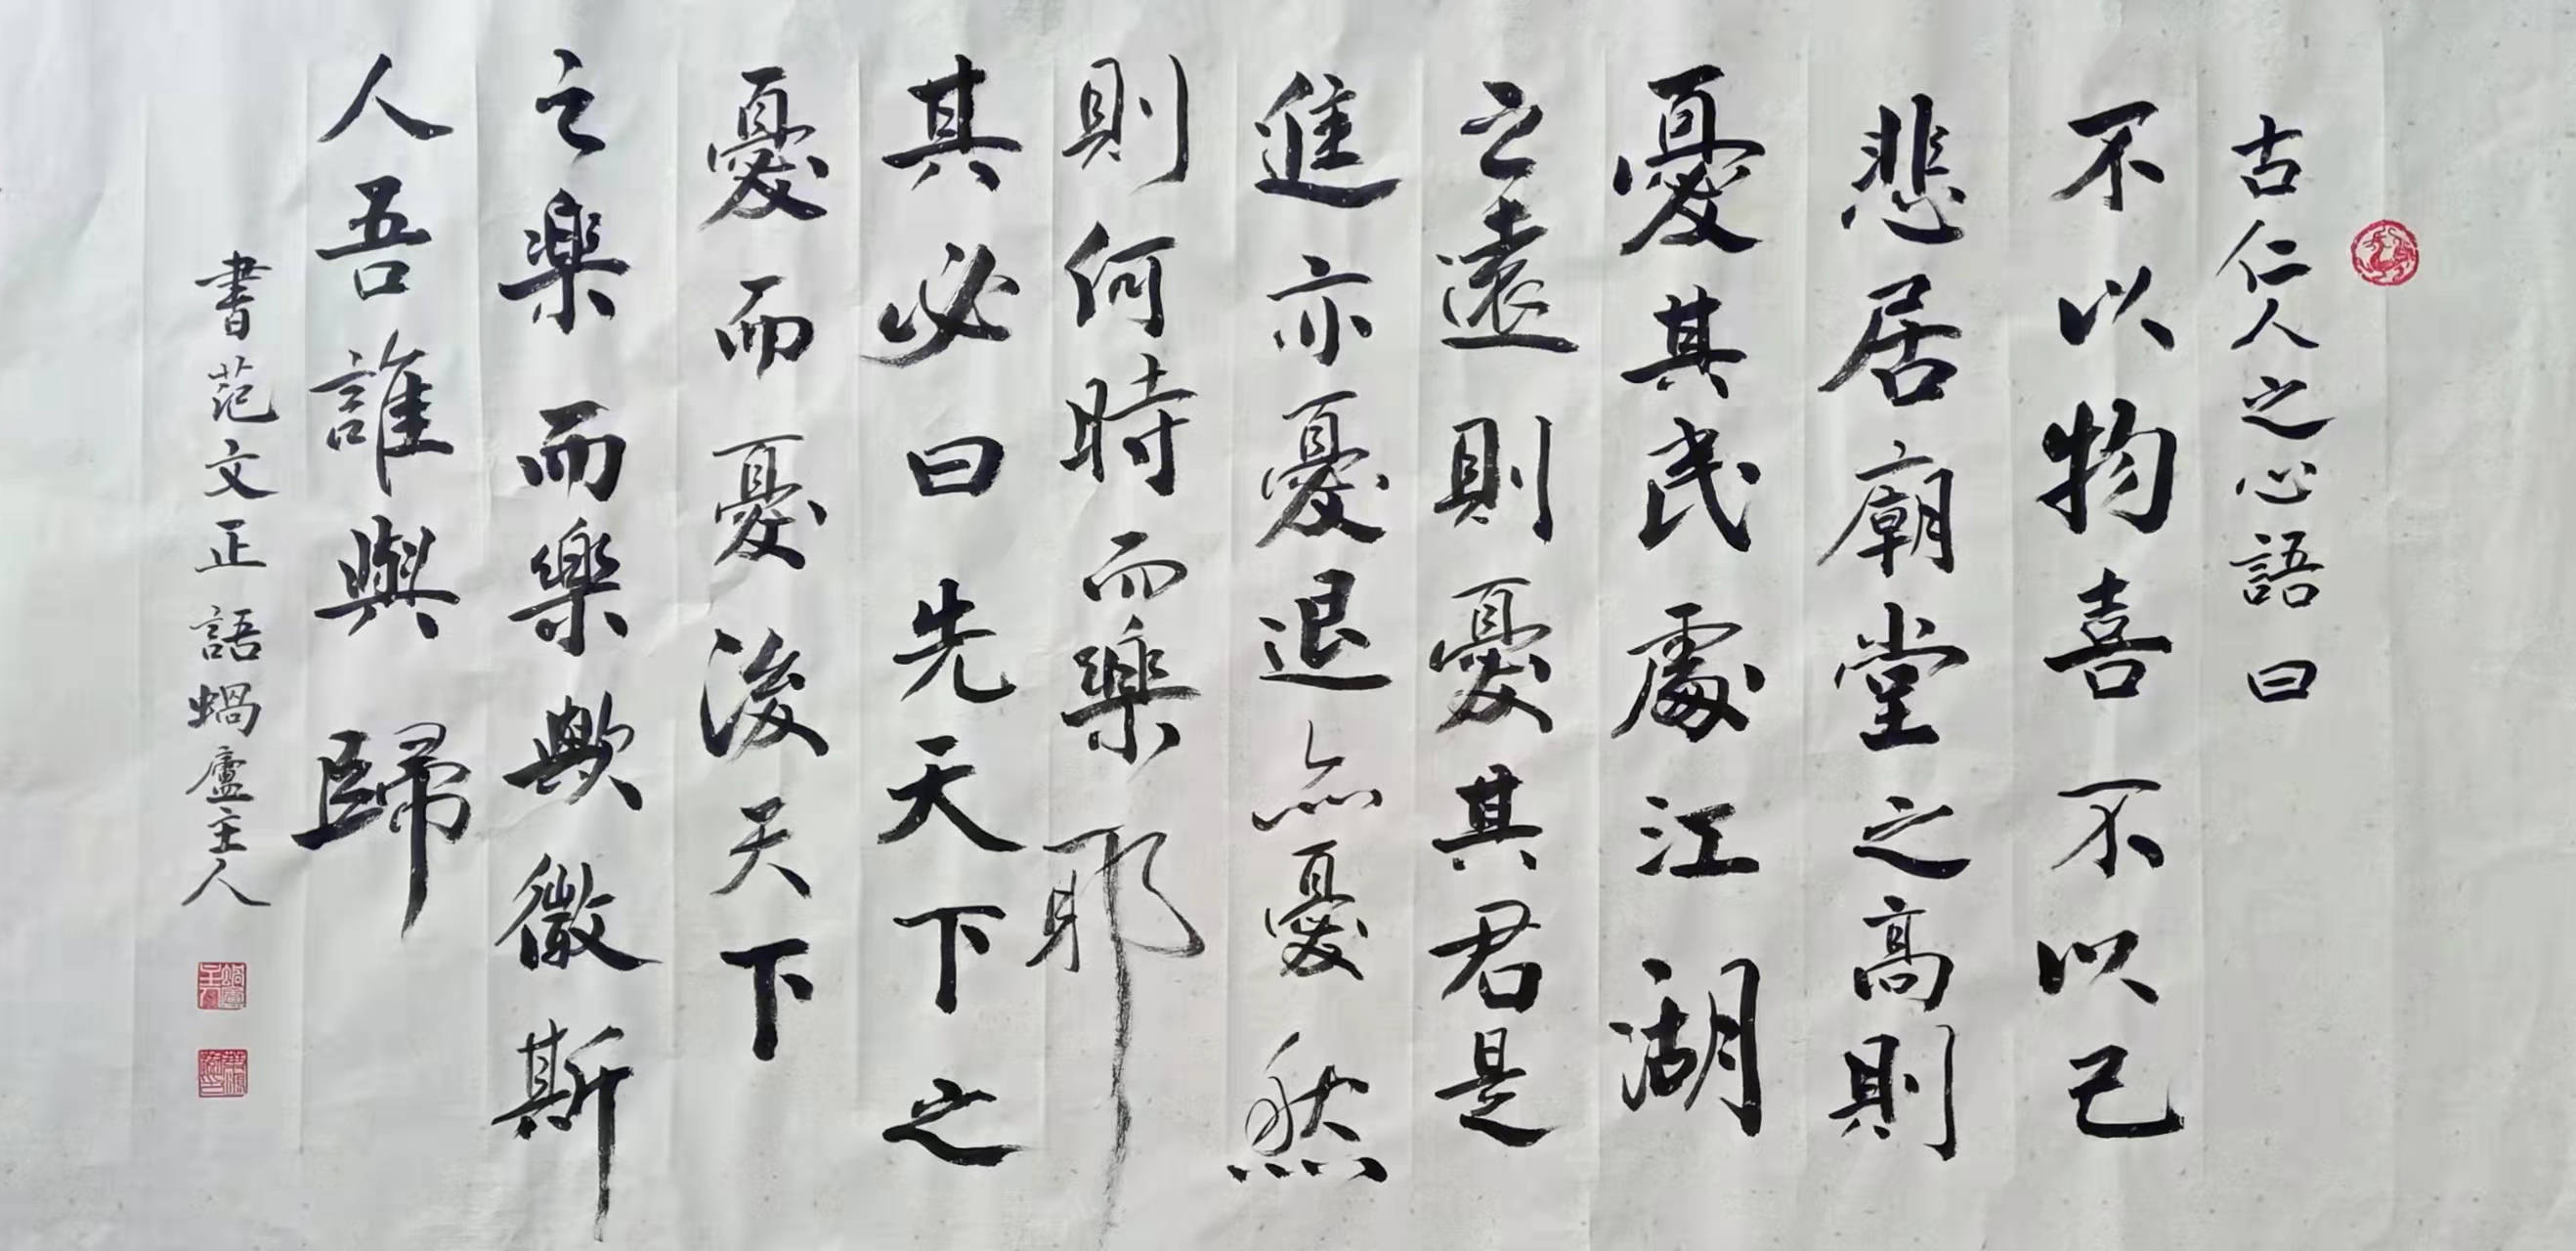 古仁人之心語曰
不以物喜不以己
悲居廟堂之高則
憂其民處江湖
之遠則憂其君是
進亦憂退亦憂然
則何時而樂耶
其必曰先天下之
憂而憂後天下
之樂而樂歟微斯
人吾誰與歸
書范文正語蝸廬主人